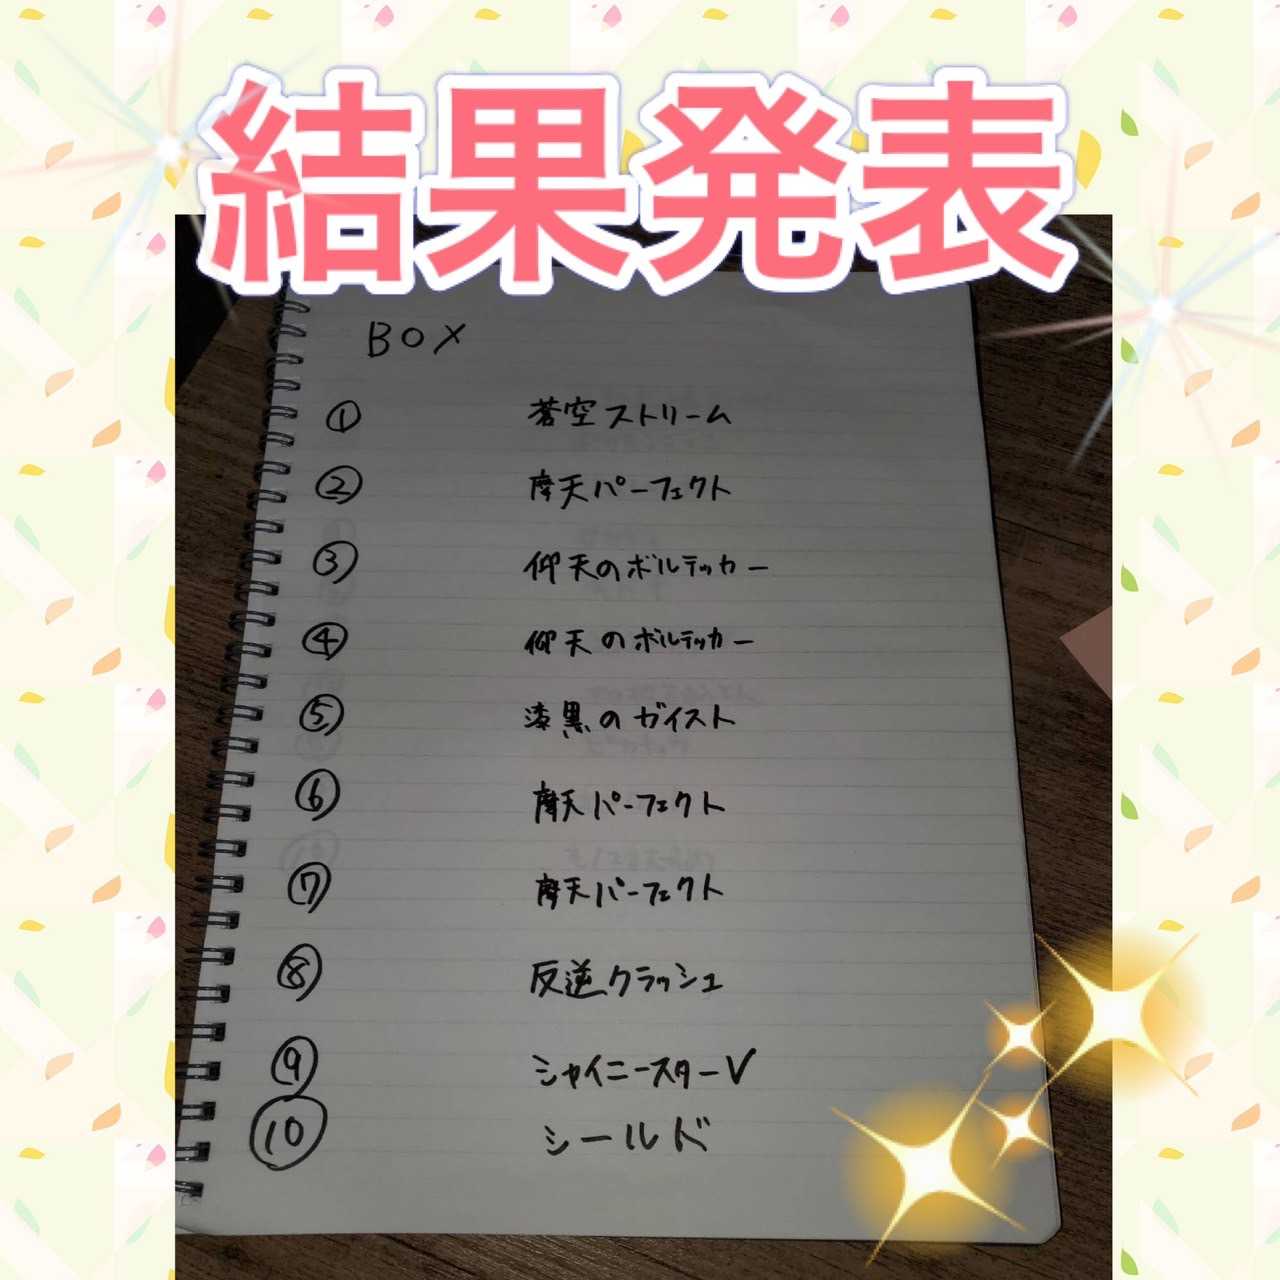 結果発表
BOX
① 蒼空ストリーム
② 摩天パーフェクト
③ 仰天のボルテッカー
④ 仰天のボルテッカー
⑤ 漆黒のガイスト
⑥ 摩天パーフェクト
⑦ 摩天パーフェクト
⑧ 反逆クラッシュ
⑨ シャイニースターV
⑩ シールド